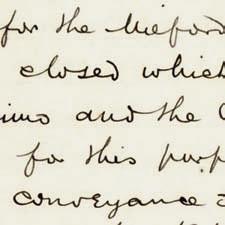 for the Meford
closed which
and the
for this purp
conveyance